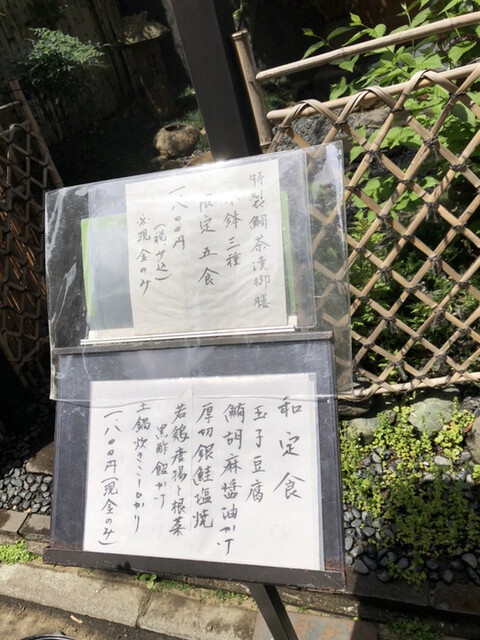 特製鯛茶漬御膳
小鉢三種
限定五食
一八〇〇円
(税込)
※現金のみ
和定食
玉子豆腐
鮪胡麻醤油かけ
厚切銀鮭塩焼
若鶏唐揚と根菜
黒酢餡かけ
土鍋炊きこしひかり
一八〇〇円(現金のみ)